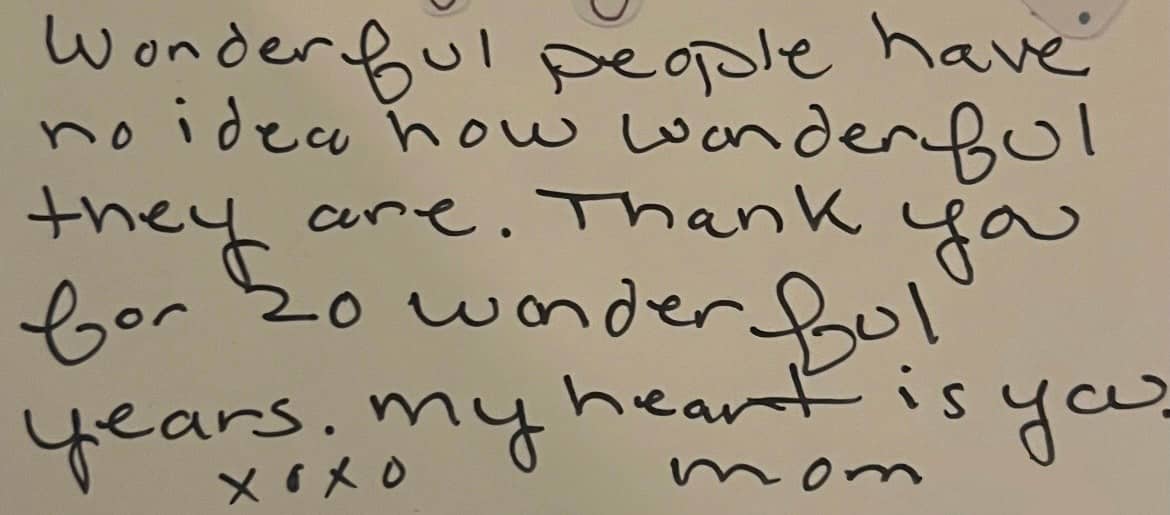 Wonderful people have
no idea how wonderful
they are. Thank you
for 20 wonderful
years. my heart is you.
xoxo mom